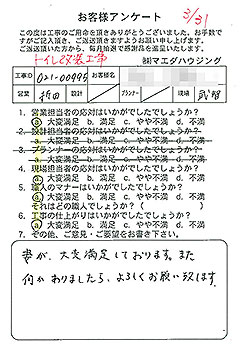 お客様アンケート
3/31
この度は工事のご用命を頂きありがとうございました。お手数で
すがご記入頂き、ご返送頂きますようお願い申し上げます。
ご返送頂いた方から、毎月抽選で感謝品を送呈いたします。
トイレ改装工事
㈱マエダハウジング
工事ID 021-00995 お客様名
営業 折田 設計 プランナー 現場 武智
1. 営業担当者の応対はいかがでしたでしょうか?
a. 大変満足 b. 満足 c. やや不満 d. 不満
2. 設計担当者の応対はいかがでしたでしょうか?
a. 大変満足 b. 満足 c. やや不満 d. 不満
3. プランナーの応対はいかがでしたでしょうか?
a. 大変満足 b. 満足 c. やや不満 d. 不満
4. 現場担当者の応対はいかがでしたでしょうか?
a. 大変満足 b. 満足 c. やや不満 d. 不満
5. 職人のマナーはいかがでしたでしょうか?
a. 大変満足 b. 満足 c. やや不満 d. 不満
それはどの職人でしょうか?( )
6. 工事の仕上がりはいかがでしたでしょうか?
a. 大変満足 b. 満足 c. やや不満 d. 不満
7. その他、ご意見・ご要望をお書き下さい。
妻が、大変満足しております。また
何かありましたら、よろしくお願い致します。